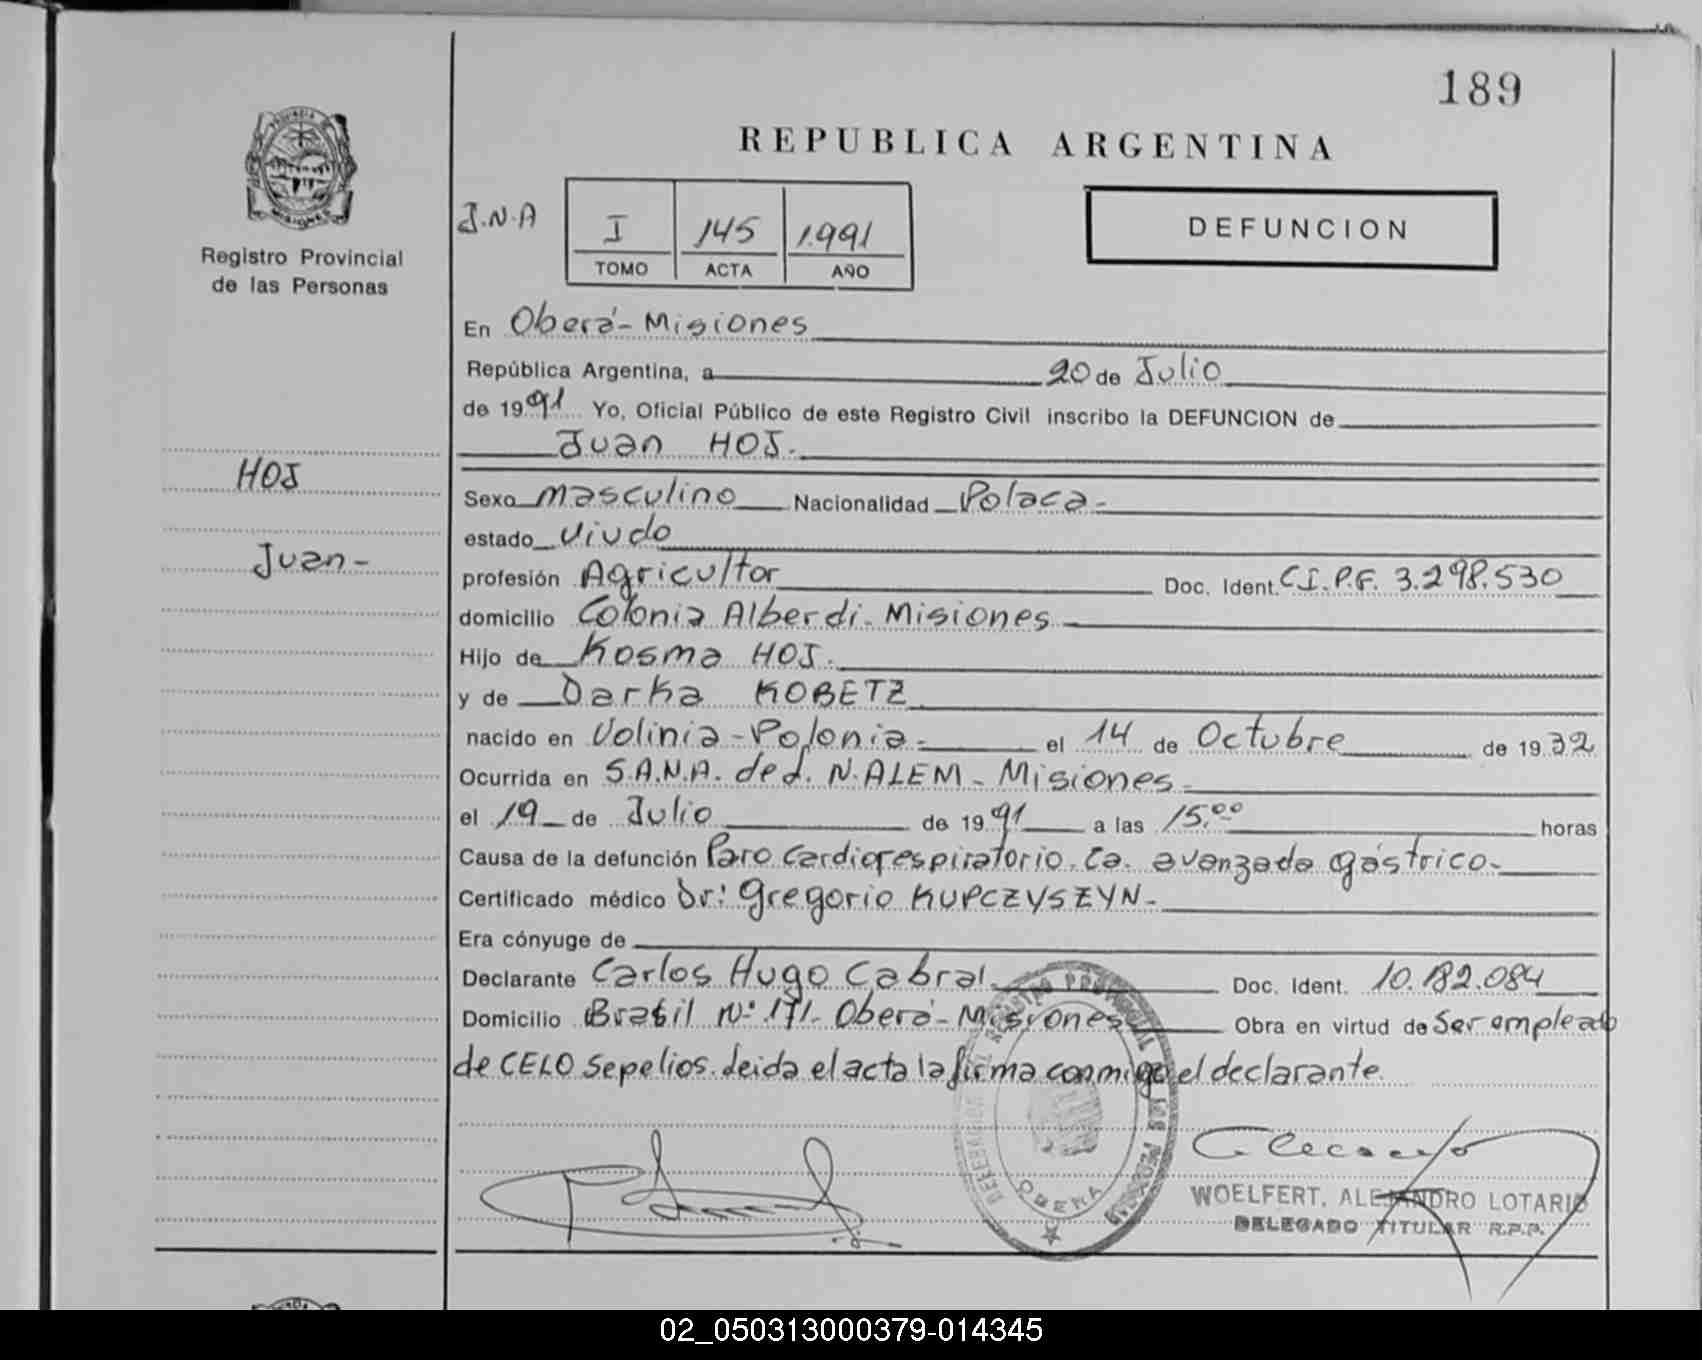 189
REPUBLICA ARGENTINA
PROVINCIA DE
MISIONES
Registro Provincial
de las Personas
J.N.A
I 145 1.991
TOMO ACTA AÑO
DEFUNCION
En Oberá - Misiones
República Argentina, a 20 de Julio
de 1991 Yo, Oficial Público de este Registro Civil inscribo la DEFUNCION de
Juan HOJ.
HOJ
Juan -
Sexo masculino Nacionalidad Polaca -
estado viudo
profesión Agricultor Doc. Ident. C.I.P.F. 3.298.530
domicilio Colonia Alberdi. Misiones
Hijo de Kosma HOJ.
y de Darka KOBETZ
nacido en Volinia - Polonia - el 14 de Octubre de 1932
Ocurrida en S.A.N.A. de L. N. ALEM - Misiones -
el 19 de Julio de 1991 a las 15.00 horas
Causa de la defunción Paro cardiorespiratorio. Ca. avanzado gástrico -
Certificado médico Dr: Gregorio KUPCZYSZYN -
Era cónyuge de
Declarante Carlos Hugo Cabral Doc. Ident. 10.182.084
Domicilio Brasil Nº 171 - Oberá - Misiones Obra en virtud de Ser empleado
de CELO Sepelios. Leida el acta la firma conmigo el declarante.
OBERA
WOELFERT, ALEJANDRO LOTARIO
DELEGADO TITULAR R.P.P.
02_050313000379-014345